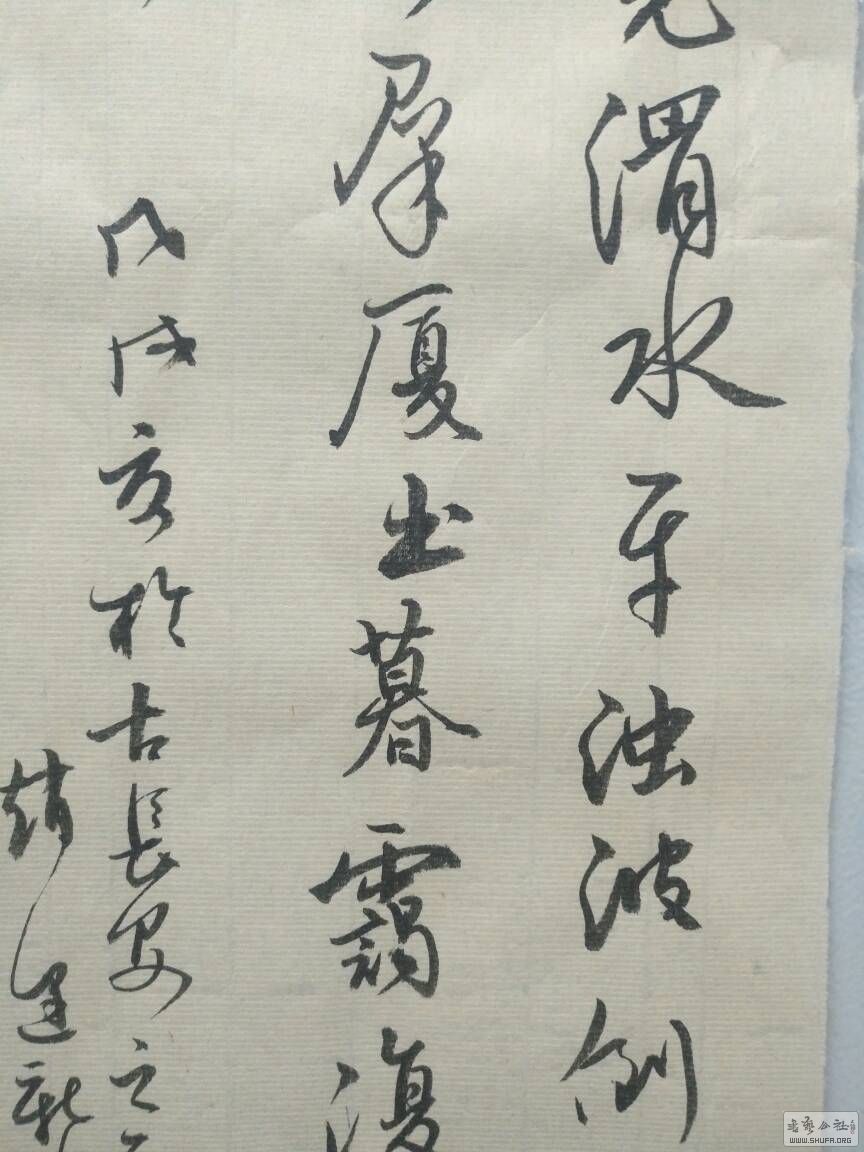 渭水平浊波倒
群厦出暮霭復
戊戌夏於古長安之
趙
书艺公社
WWW.SHUFA.ORG